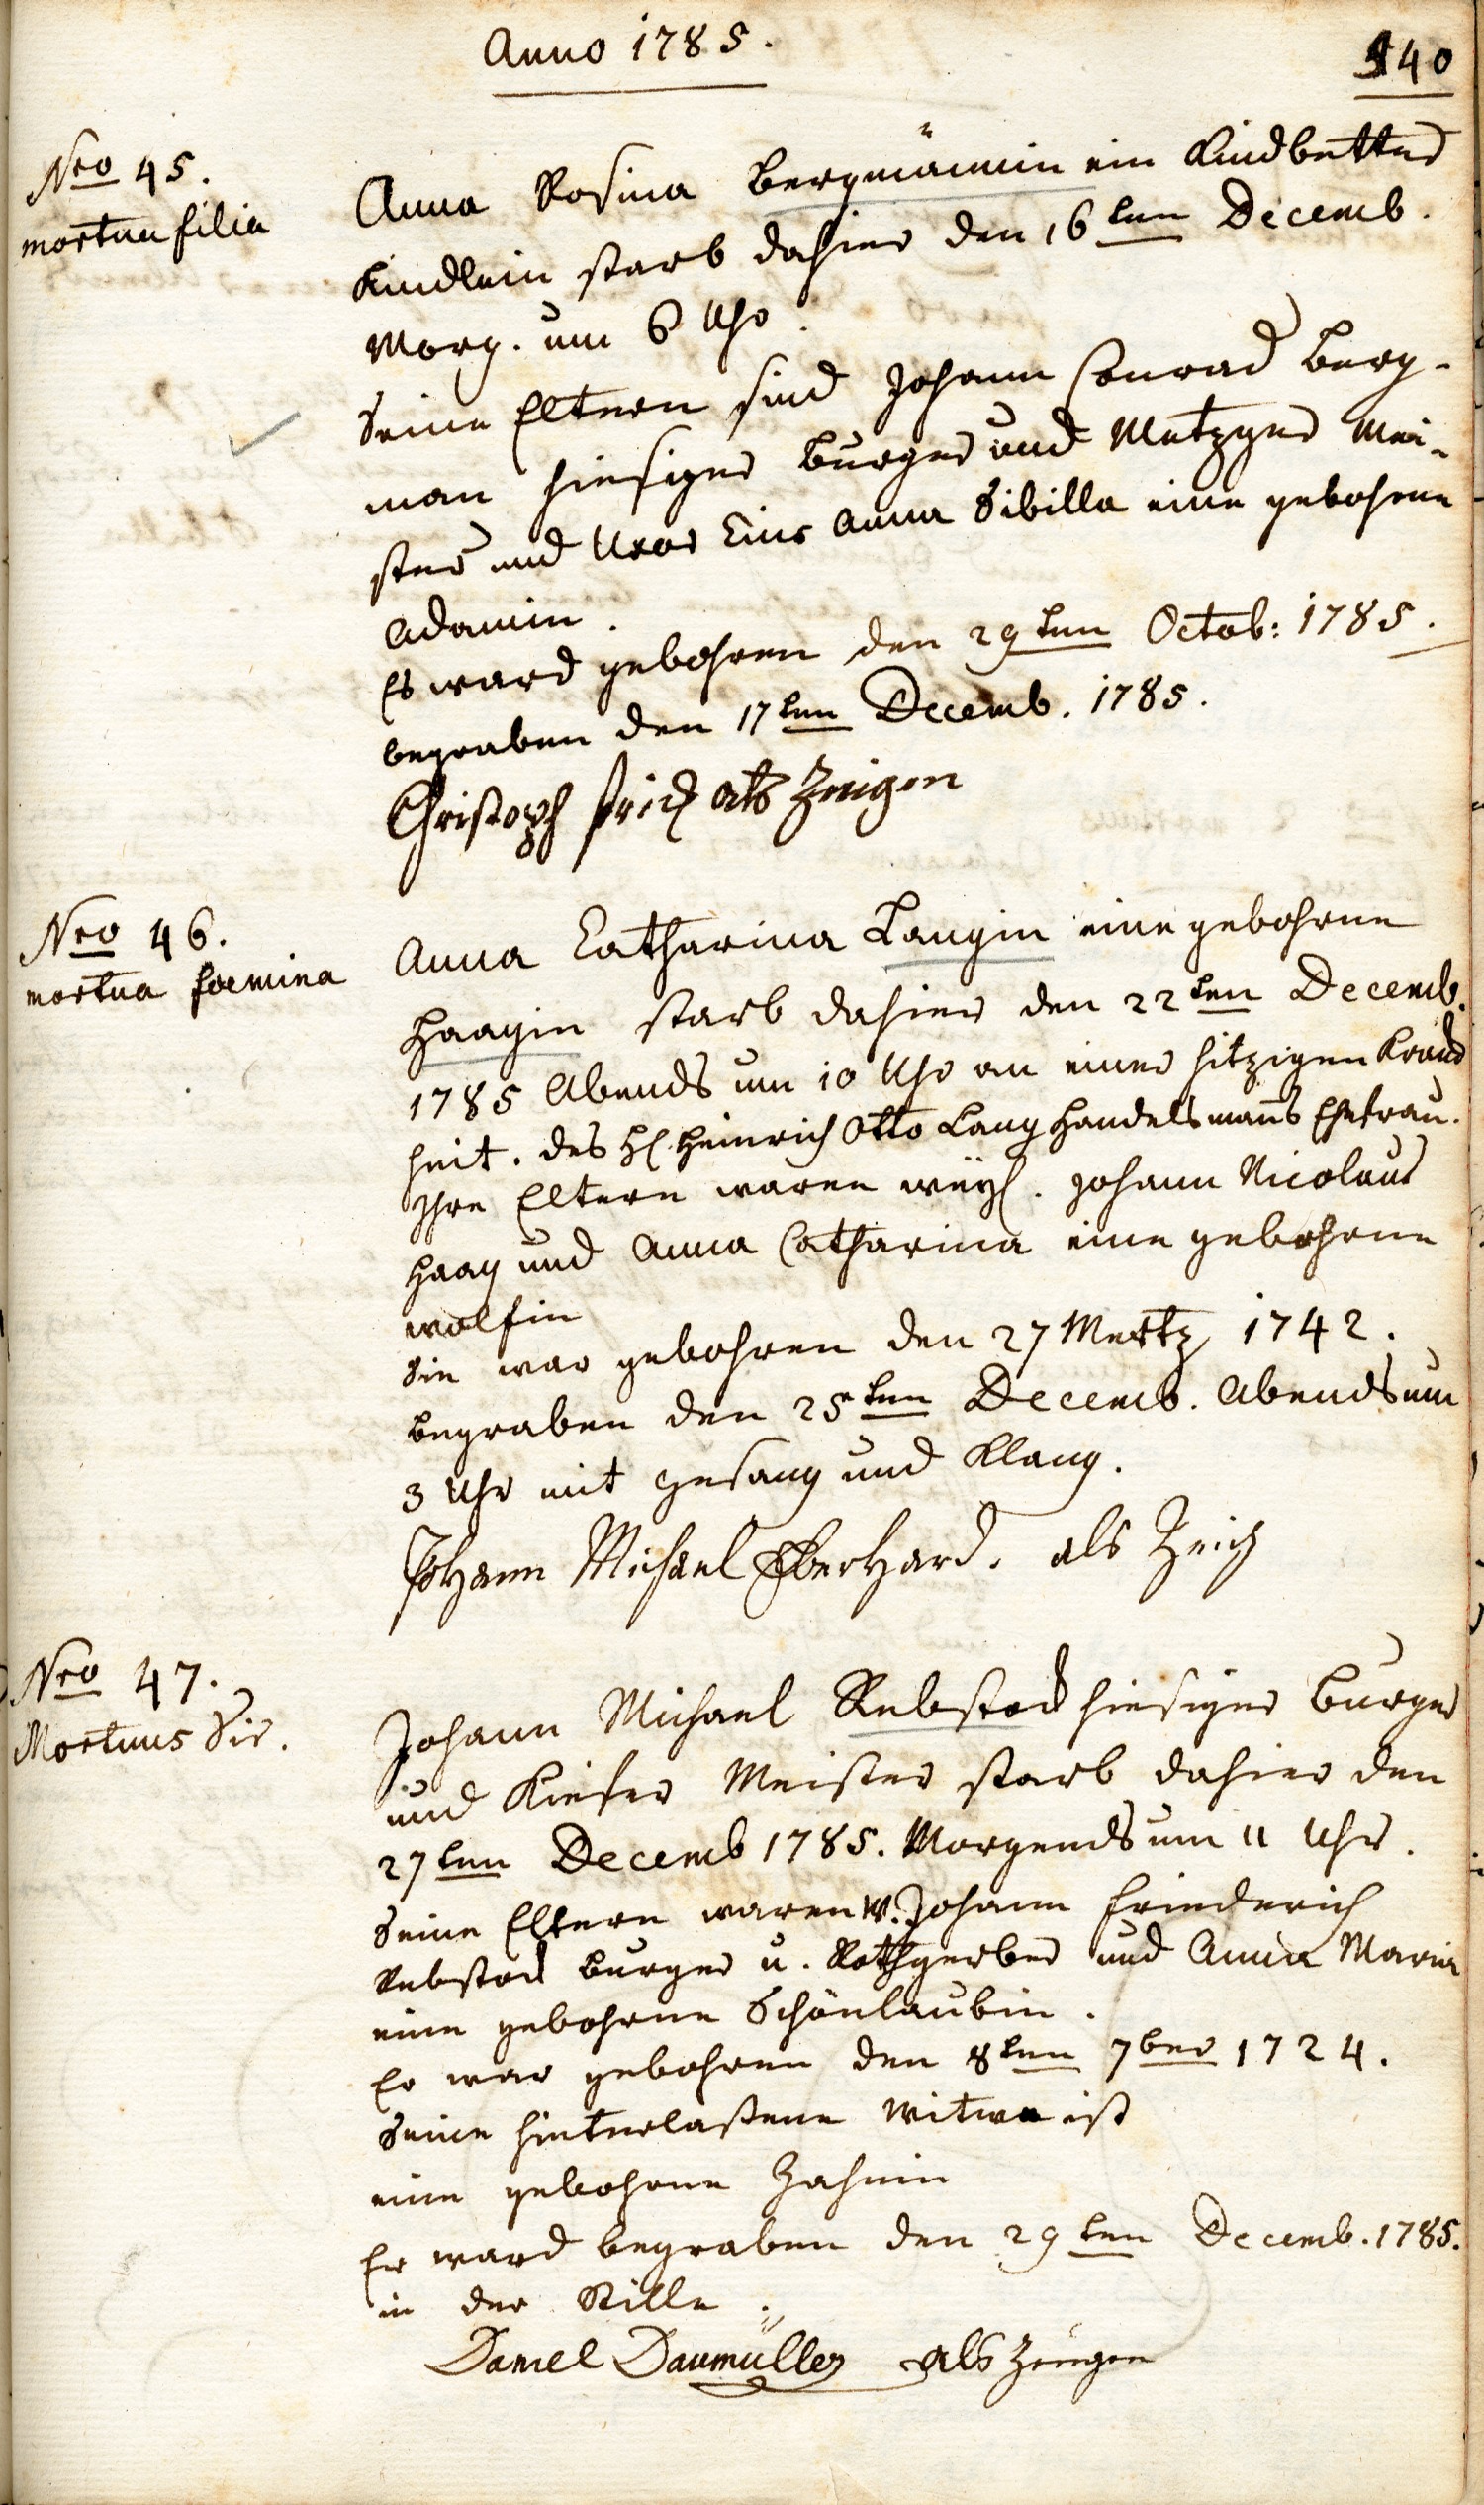 Anno 1785.
140
Nro 45.
mortua filia
Anna Rosina Bergmännin ein Kindbetter
Kindlein starb dahier den 16ten Decemb.
Morg. um 6 Uhr.
Seine Eltern sind Johann Conrad Berg-
man hiesiger Burger und Metzger Mei-
ster und Uxor Eius Anna Sibilla eine gebohrne
Adamin.
Es ward gebohren den 29ten Octob: 1785.
begraben den 17ten Decemb. 1785.
Christoph als Zeugen
Nro 46.
mortua foemina
Anna Catharina Langin eine gebohrne
Haagin starb dahier den 22ten Decemb.
1785 Abends um 10 Uhr an einer hitzigen Kranck
heit. des H. Heinrich Otto Lang Handelsmanns Ehefrau.
Ihre Eltern waren weyl. Johann Nicolaus
Haag und Anna Catharina eine gebohrne
Wolfin
Sie war gebohren den 27 Mertz 1742.
begraben den 25ten Decemb. Abends um
3 Uhr mit gesang und Klang.
Johann Michael Eberhard. als Zeug
Nro 47.
Mortuus Vir.
Johann Michael Rebstock hiesiger Burger
und Kiefer Meister starb dahier den
27ten Decemb 1785. Morgends um 11 Uhr.
Seine Eltern waren W. Johann Friederich
Rebstock Burger u. Rothgerber und Anna Maria
eine gebohrne Schönlaubin.
Er war gebohren den 8ten 7ber 1724.
Seine hinterlaßene Witwe ist
eine gebohrne Zahnin
Er ward begraben den 29ten Decemb. 1785.
in der Stille.
Daniel Daumüller als Zeugen